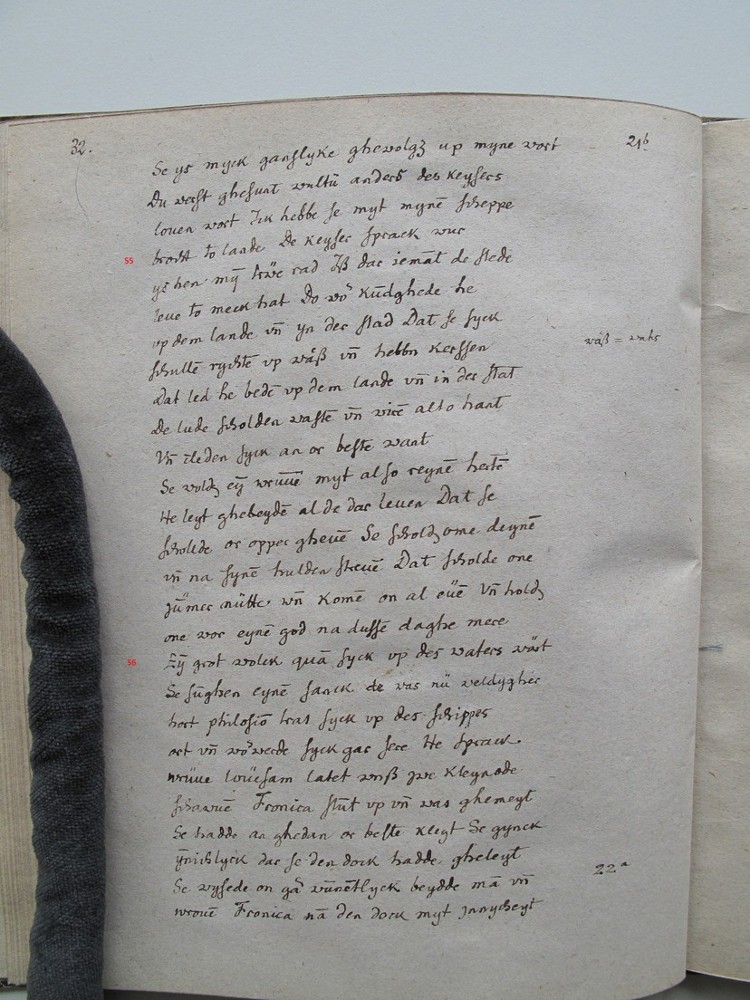 32.
21b
Se ys myck ganslyke ghevolgʒ up myne wort
Du werst ghesunt wultu anders des Keysers
loven wort Ick hebbe se myt mynē scheppe
55 brocht to lande De Keyser sprack wur
ys hen mȳ trwe rad Iß dar iemāt de stede
leue to meck hat Do wo Kūdghede he
up dem lande vn̄ yn der stad Dat se syck
schulle rychte up wåß vn̄ hebbn Kerssen
wåß = wahs
Dat led he bede up dem lande vn̄ in der stat
De lude scholden vaste vn̄ virē alto hant
Vn̄ cleden syck an or beste want
Se voldʒ eȳ vruwē myt also reynē hertē
He leyt ghebeydē al de dar leuen Dat se
scholde or opper ghevē Se scholdʒ ome deynē
vn̄ na synē hulden strevē Dat scholde one
jūmer nütte wn̄ Komē on al ouē Vn̄ holdʒ
one vor eynē god na dusse daghe mere
56 Eȳ grot volck quā syck up des waters wårt
Se sughen eynē sanck de was nū weldygher
hort philosio was syck up des schippes
ort vn̄ vo werde syck gar sere He sprack
vrüue louesam latet vnß jwe Kleynode
schawē Fronica stūt up vn̄ was ghemeyt
Se hadde an ghedan or beste Kleyt Se gynck
ȳnichlyck dar se den dock hadde gheleyt
22a
Se wysede on gā wūnetlyck beydde mā vn̄
vrouē Fronica nā den dock myt jnnycheyt